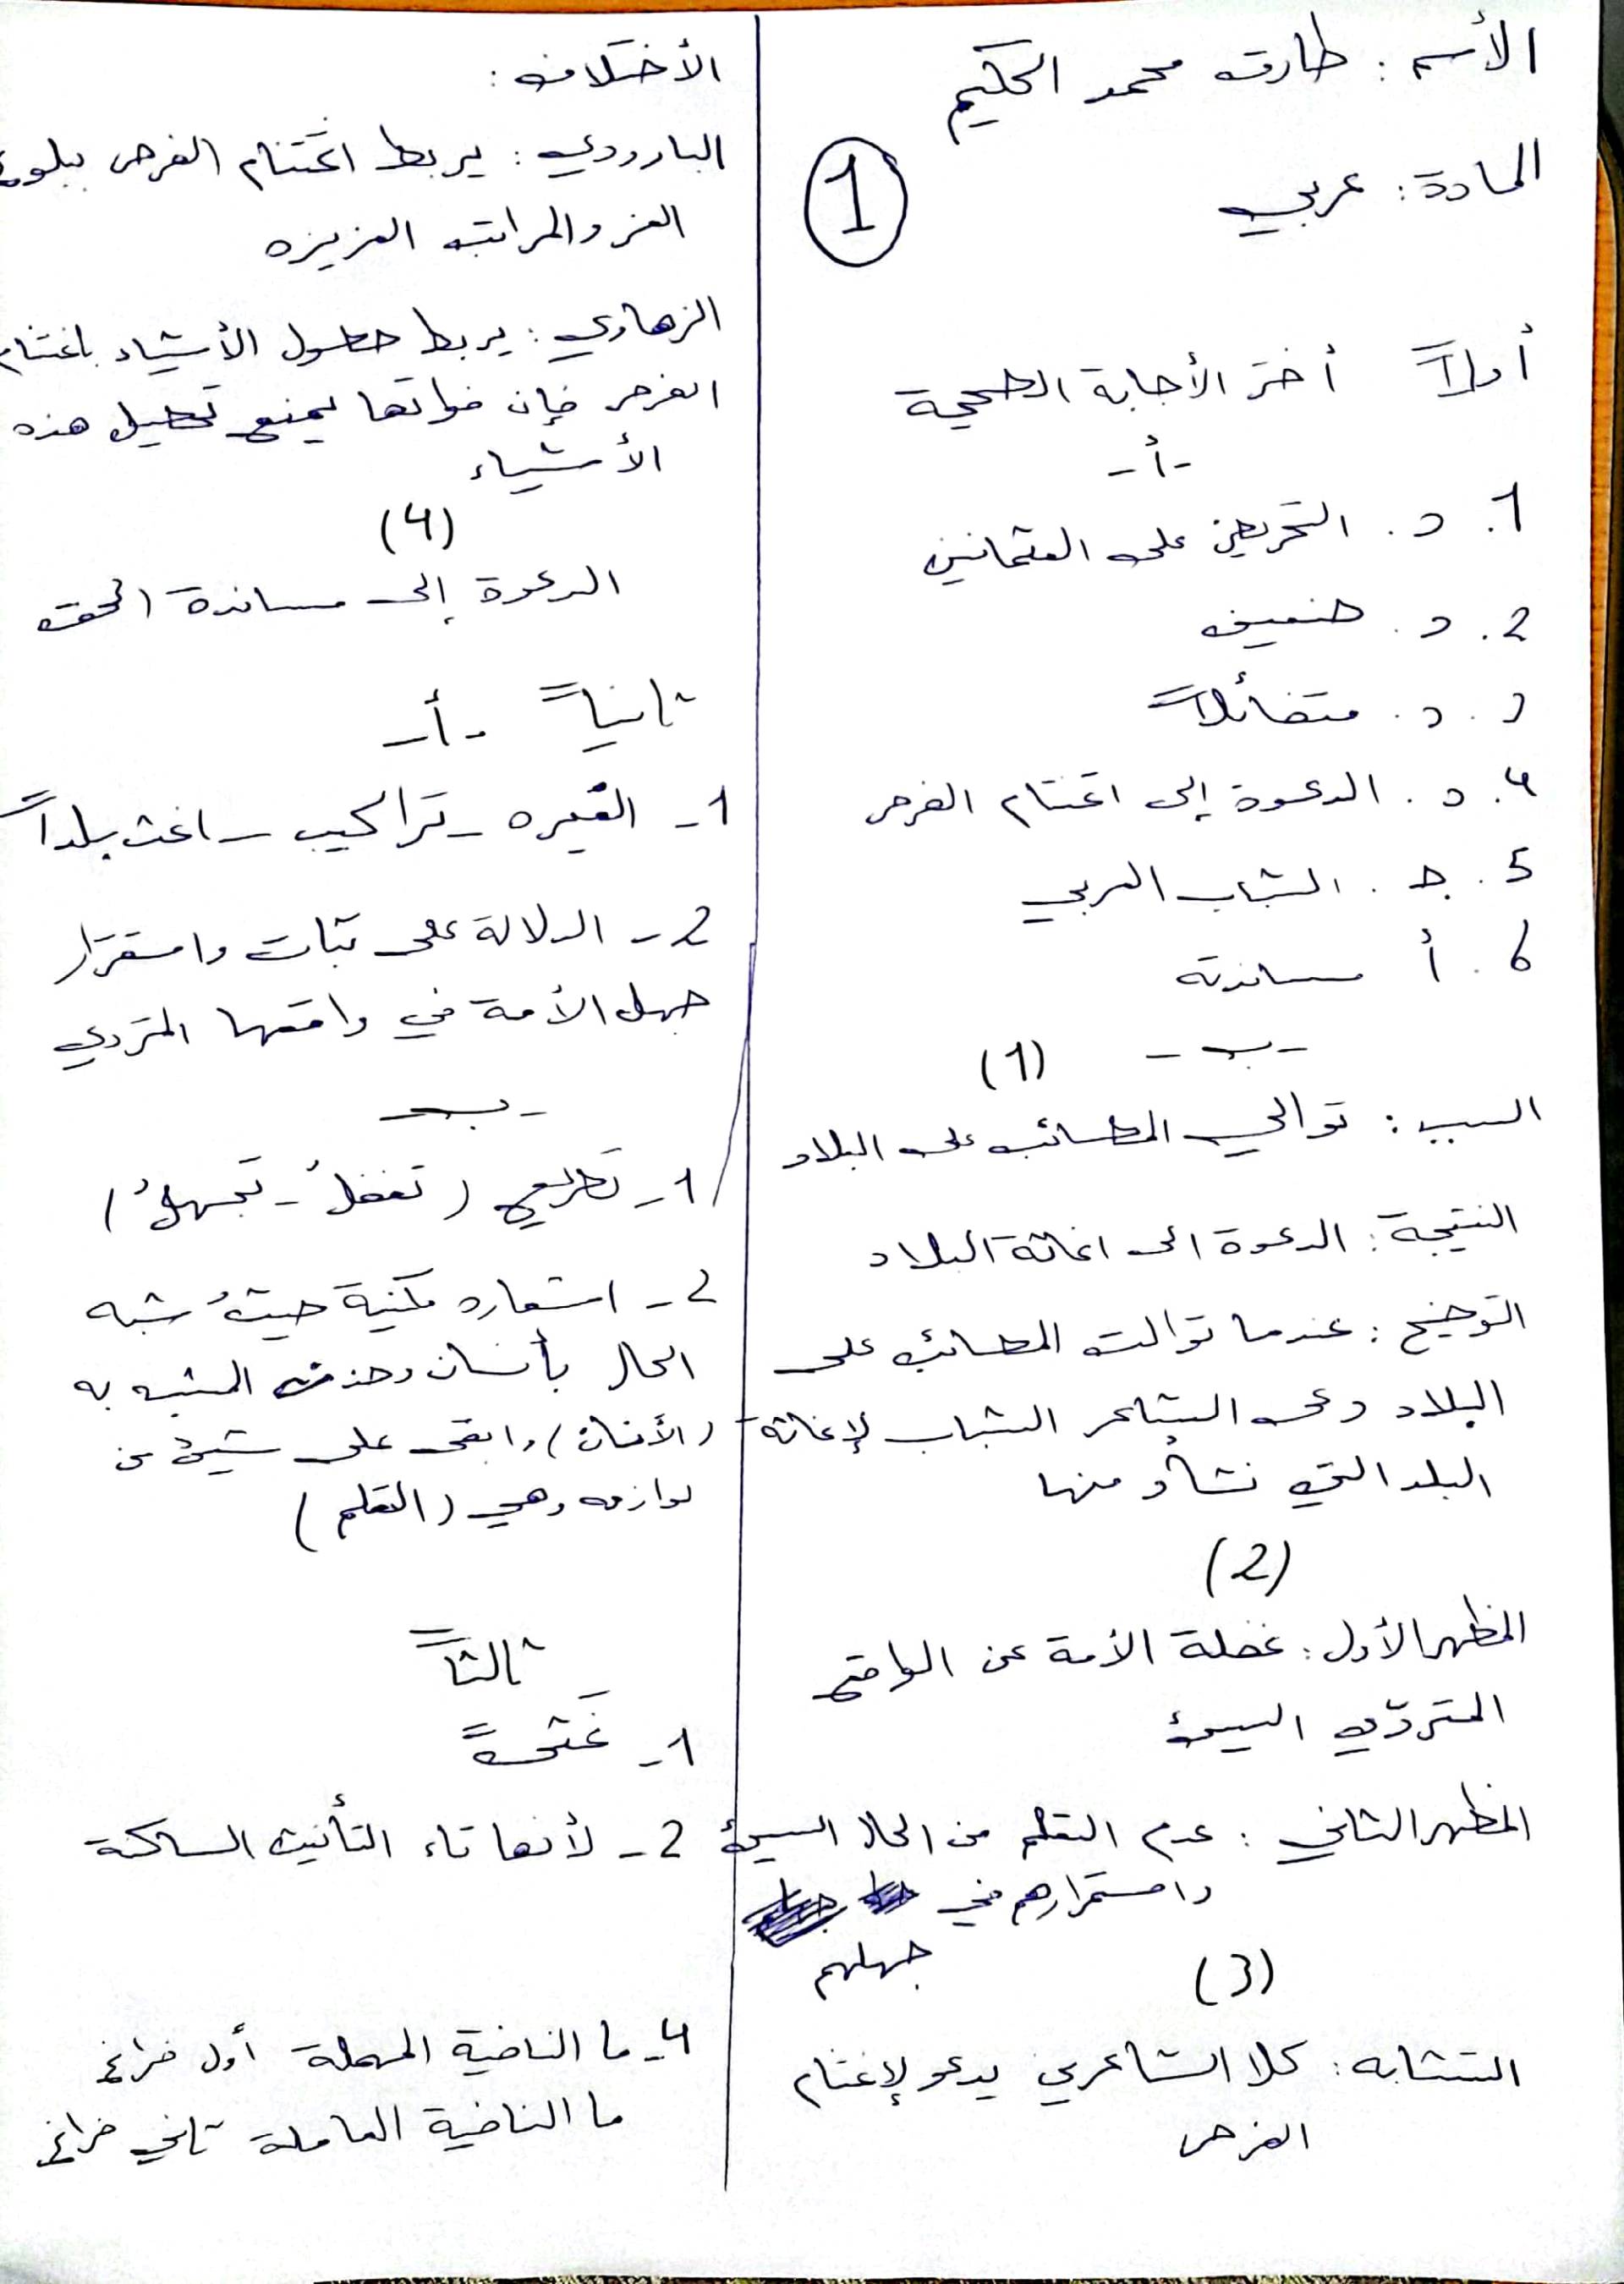 الأسم : طارق محمد الحكيم
المادة : عربي
1
أولاً أختر الأجابة الصحيحة
- أ -
1. د. التحريض على العثمانين
2. د. ضعيف
د. متفائلاً
4. د. الدعوة إلى اغتنام الفرص
5. جـ. الشباب العربي
6. أ مساندته
- ب - (1)
السبب : توالي المصائب على البلاد
النتيجة : الدعوة الى اغاثة البلاد
التوضيح : عندما توالت المصائب على
البلاد دعى الشاعر الشباب لإغاثة
البلد التي نشأو منها
(2)
المظهر الأول : غفلة الأمة عن الواقع
المتردّي السيئ
المظهر الثاني : عدم التعلم من الحال السيئ
واستمرارهم في
جهلهم
(3)
التشابه : كلا الشاعرين يدعو لإغتنام
الفرص
الأختلاف :
البارودي : يربط اغتنام الفرص ببلوغ
العز والمراتب العزيزه
الزهاوي : يربط حصول الأشياء باغتنام
الفرص فإن فواتها يمنع تحصيل هذه
الأشياء
(4)
الدعوة إلى مساندة الحق
ثانياً - أ -
1 - الغيره - تراكيب - اغث بلداً
2 - الدلالة على ثبات واستقرار
جهل الأمة في واقعها المتردي
- ب -
1 - تصريع ( تغفلُ - تجهلُ )
2 - استعاره مكنية حيثُ شبه
الحال بأنسان وحذف المشبه به
( الأنسان ) وابقى على شيئ من
لوازمه وهي ( التعلم )
ثالثاً
1 -
2 - لأنها تاء التأنيث الساكنة
4 - ما النافية المهملة أول فراغ
ما النافية العاملة ثاني فراغ